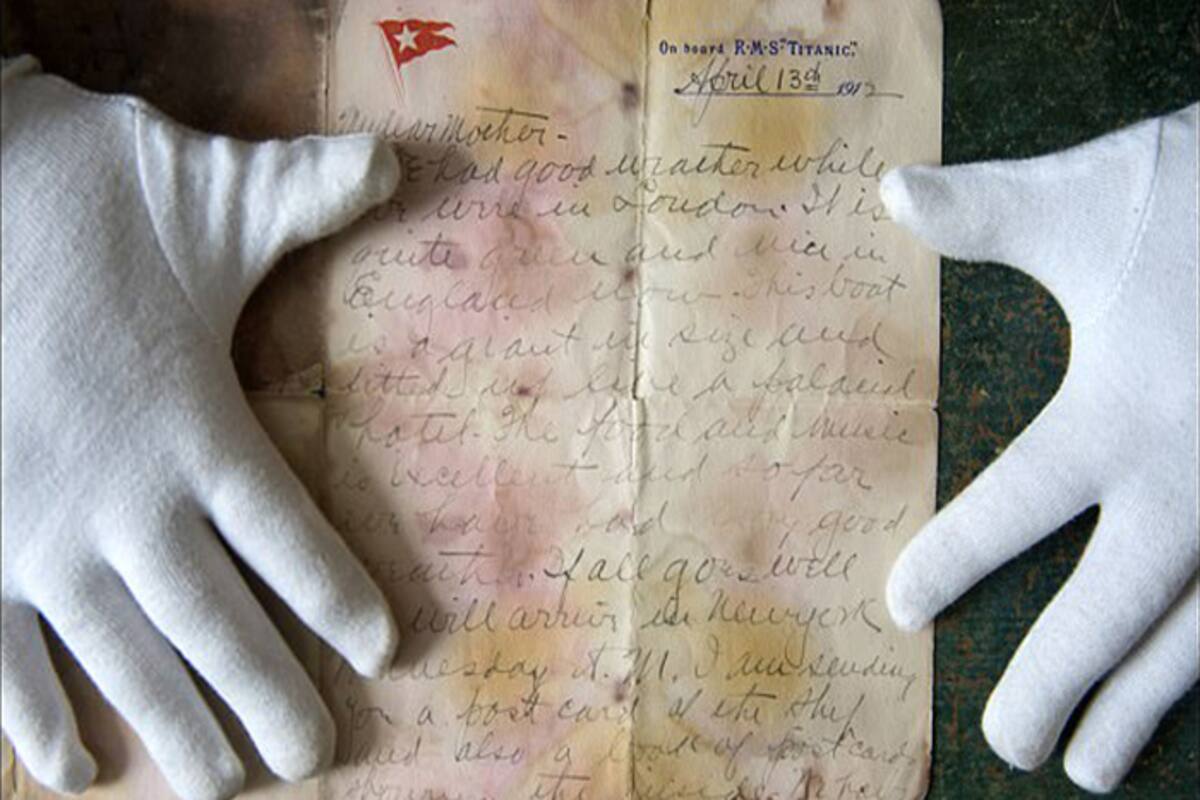 On board R·M·S "TITANIC."
April 13th 1912
My dear Mother -
had good weather while
were in London. It is
quite green and nice in
England now. This boat
is a giant in size and
fitted up like a palacial
hotel. The food and music
is excellent and so far
we have had good
weather. If all goes well
will arrive in New york
A.M. I am sending
you a post card of the ship
and also a book of postcards
the inside